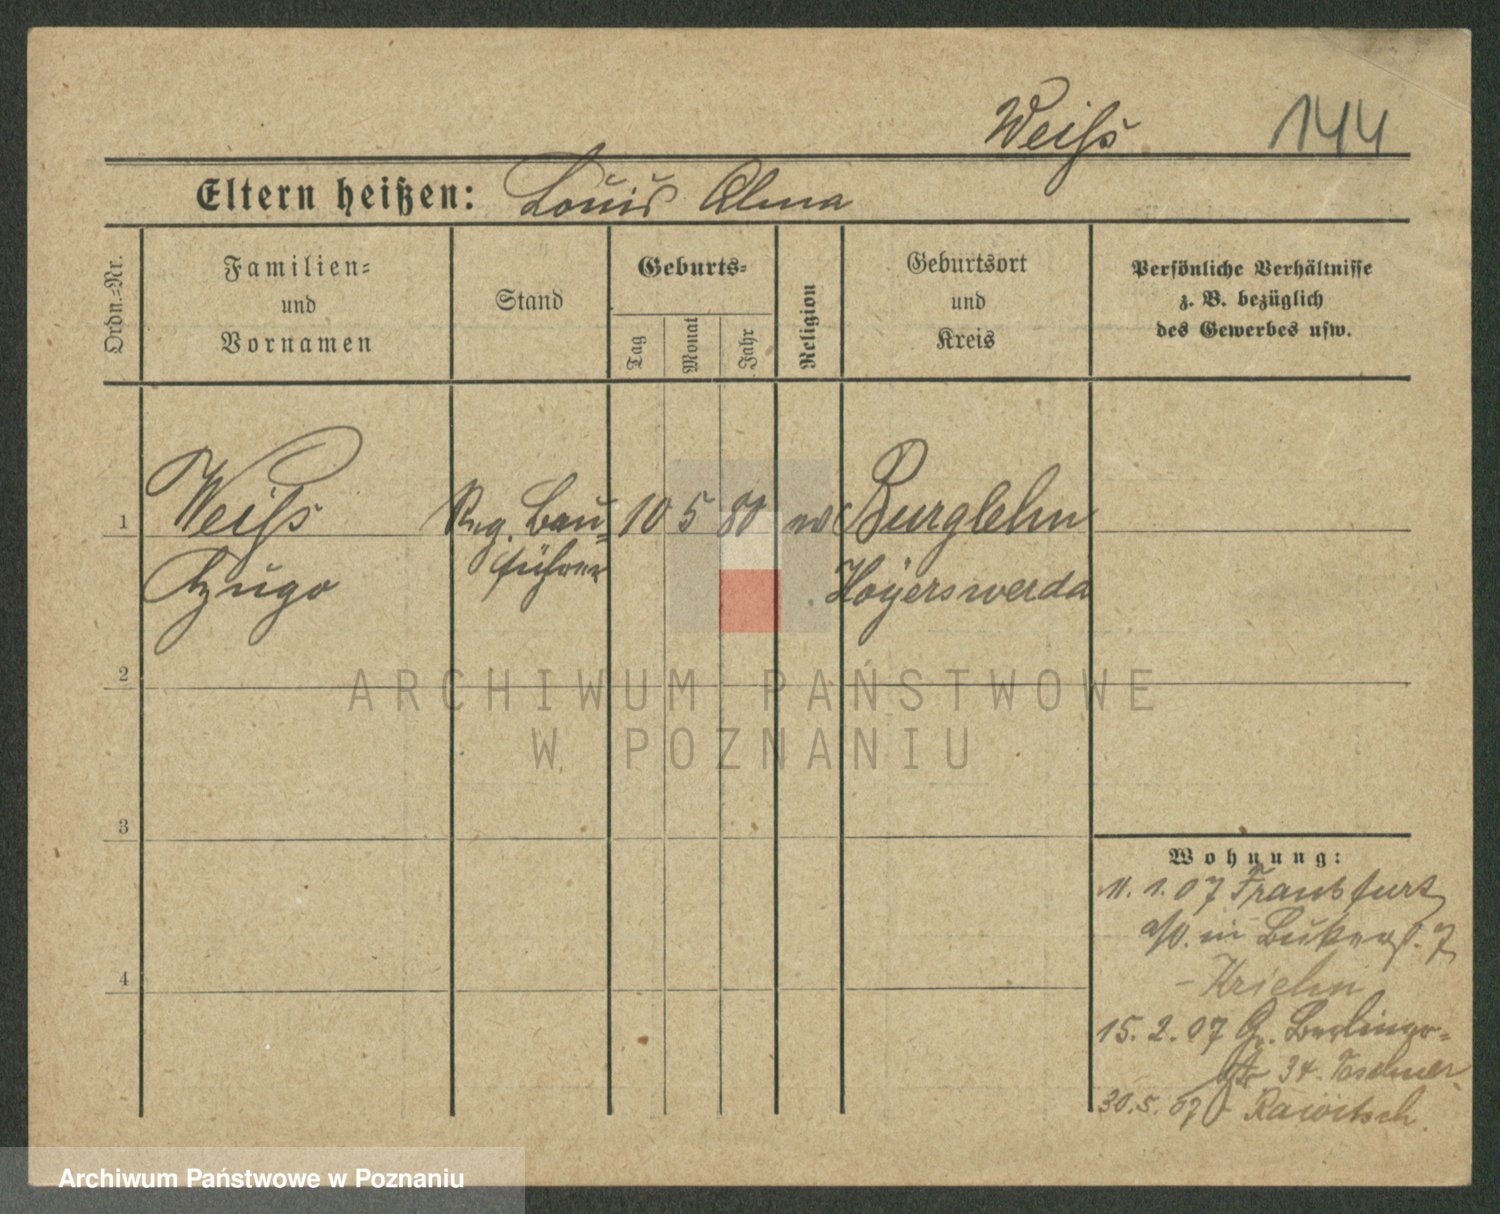 Weiſs 144
Eltern heißen: Louis Alma
Ordn.-Nr.
Familien-
und
Vornamen
Stand
Geburts-
Tag
Monat
Jahr
Religion
Geburtsort
und
Kreis
Persönliche Verhältnisse
z. B. bezüglich
des Gewerbes usw.
1 Weiſs Reg. Bau 10 5 80 ev Burglehn
Hugo führer Hoyerswerda
2
ARCHIWUM PAŃSTWOWE
W POZNANIU
3
Wohnung:
11. 1. 07 Frankfurt
a/O. in Bukerst. 7
4
- Kriehn
15. 2. 07 Gr. Berliner-
str 34. Teschner
30. 5. 07 - Rawitsch.
Archiwum Państwowe w Poznaniu